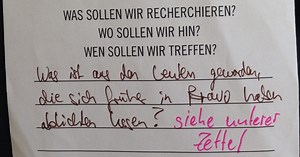 WAS SOLLEN WIR RECHERCHIEREN?
WO SOLLEN WIR HIN?
WEN SOLLEN WIR TREFFEN?
Was ist aus den Leuten geworden,
die sich früher in Bravo haben
ablichten lassen? siehe unterer
Zettel